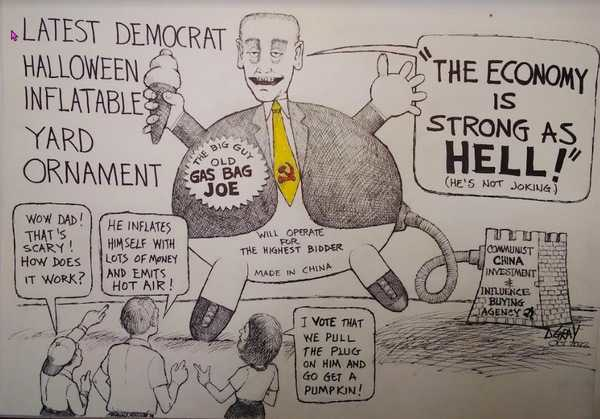 LATEST DEMOCRAT
HALLOWEEN
INFLATABLE
YARD
ORNAMENT
"THE ECONOMY
IS
STRONG AS
HELL!"
(HE'S NOT JOKING)
THE BIG GUY
OLD
GAS BAG
JOE
WILL OPERATE
FOR
THE HIGHEST BIDDER
MADE IN CHINA
WOW DAD!
THAT'S
SCARY!
HOW DOES
IT WORK?
HE INFLATES
HIMSELF WITH
LOTS OF MONEY
AND EMITS
HOT AIR!
I VOTE THAT
WE PULL
THE PLUG
ON HIM AND
GO GET A
PUMPKIN!
COMMUNIST
CHINA
INVESTMENT
&
INFLUENCE
BUYING
AGENCY
D.GRAY